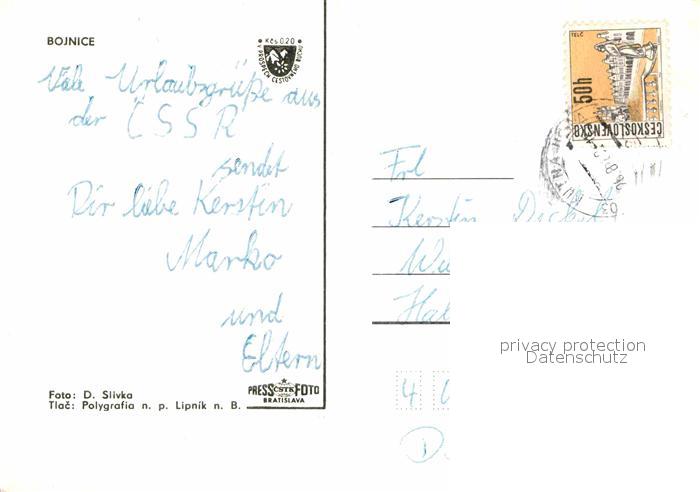 BOJNICE
Kčs 0,20
V PROSPECH CESTOVNÉHO RUCHU
Viele Urlaubsgrüße aus
der ČSSR
sendet
Dir liebe Kerstin
Marko
und
Eltern
Foto: D. Slivka
Tlač: Polygrafia n. p. Lipník n. B.
PRESS ČSTK FOTO
BRATISLAVA
TELČ
50h
ČESKOSLOVENSKO
Frl
Kerstin
privacy protection
Datenschutz
4
D